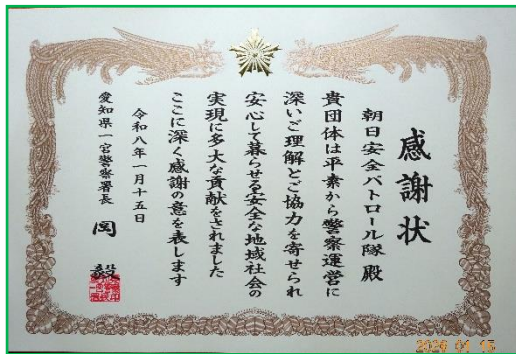 感謝状
朝日安全パトロール隊 殿
貴団体は平素から警察運営に
深いご理解とご協力を寄せられ
安心して暮らせる安全な地域社会の
実現に多大な貢献をされました
ここに深く感謝の意を表します
令和八年一月十五日
愛知県一宮警察署長 岡 毅
2026 01 15